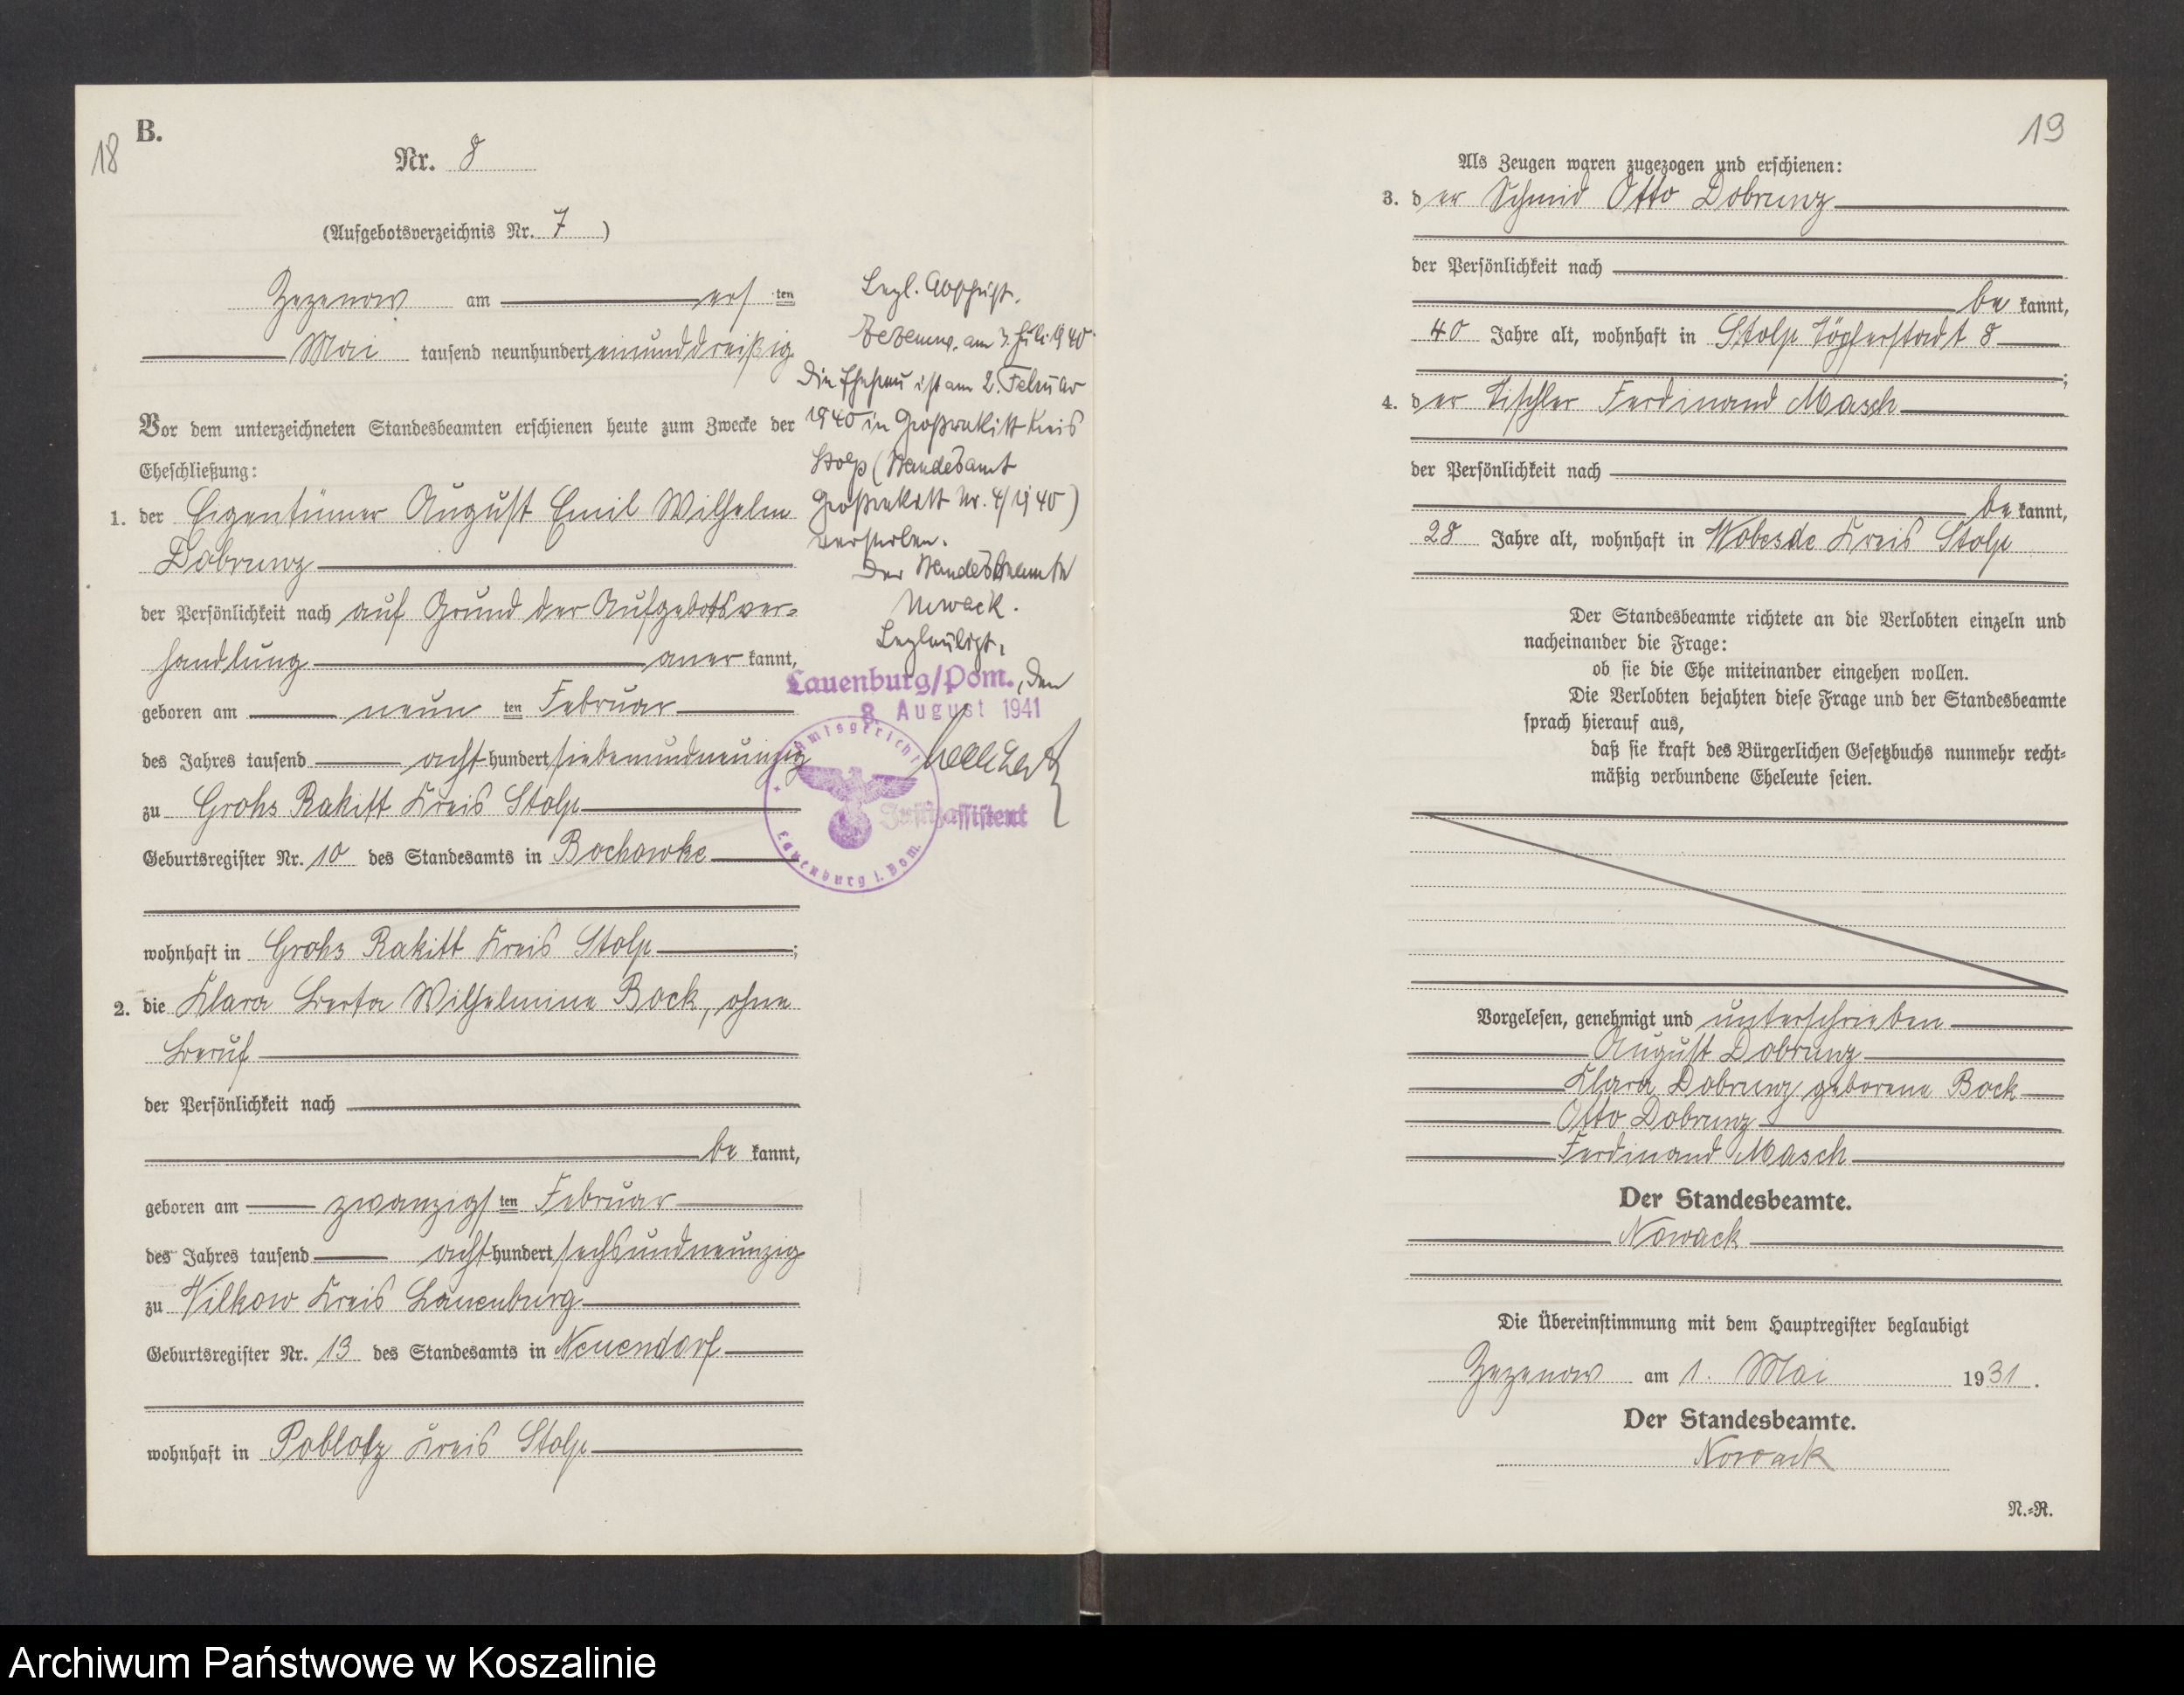 B.
18
Nr. 8
(Aufgebotsverzeichnis Nr. 7)
Zezenow am ersten
Mai tausend neunhundert einunddreißig
Vor dem unterzeichneten Standesbeamten erschienen heute zum Zwecke der
Eheschließung:
1. der Eigentümer August Emil Wilhelm
Dobrunz
der Persönlichkeit nach auf Grund der Aufgebotsver=
handlung anerkannt,
geboren am neunten Februar
des Jahres tausend achthundert siebenundneunzig
zu Grohs Rakitt Kreis Stolp
Geburtsregister Nr. 10 des Standesamts in Bochowke
wohnhaft in Grohs Rakitt Kreis Stolp;
2. die Klara Berta Wilhelmine Bock, ohne
Beruf
der Persönlichkeit nach
bekannt,
geboren am zwanzigsten Februar
des Jahres tausend achthundert sechsundneunzig
zu Vilkow Kreis Lauenburg
Geburtsregister Nr. 13 des Standesamts in Neuendorf
wohnhaft in Poblotz Kreis Stolp
Begl. Abschrift.
Zezenow, am 3. Juli 1940
Die Ehefrau ist am 2. Februar
1940 in Großrakitt Kreis
Stolp (Standesamt
Großrakitt Nr. 4/1940)
verstorben.
Der Standesbeamte
Nowack.
Beglaubigt.
Lauenburg/Pom., den
8. August 1941
Justizassistent
Amtsgericht
Lauenburg i. Pom.
19
Als Zeugen waren zugezogen und erschienen:
3. der Schmid Otto Dobrunz
der Persönlichkeit nach
bekannt,
40 Jahre alt, wohnhaft in Stolp Töpferstadt 8
;
4. der Tischler Ferdinand Masch
der Persönlichkeit nach
bekannt,
28 Jahre alt, wohnhaft in Wobesde Kreis Stolp
Der Standesbeamte richtete an die Verlobten einzeln und
nacheinander die Frage:
ob sie die Ehe miteinander eingehen wollen.
Die Verlobten bejahten diese Frage und der Standesbeamte
sprach hierauf aus,
daß sie kraft des Bürgerlichen Gesetzbuchs nunmehr recht=
mäßig verbundene Eheleute seien.
Vorgelesen, genehmigt und unterschrieben
August Dobrunz
Klara Dobrunz geborene Bock
Otto Dobrunz
Ferdinand Masch
Der Standesbeamte.
Nowack
Die Übereinstimmung mit dem Hauptregister beglaubigt
Zezenow am 1. Mai 1931.
Der Standesbeamte.
Nowack
N.=R.
Archiwum Państwowe w Koszalinie